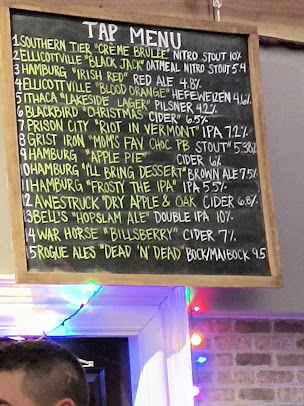 TAP MENU
1 SOUTHERN TIER "CRÈME BRULEE" NITRO STOUT 10%
2 ELLICOTTVILLE "BLACK JACK" OATMEAL NITRO STOUT 5.4
3 HAMBURG "IRISH RED" RED ALE 4.8%
4 ELLICOTTVILLE "BLOOD ORANGE" HEFEWEIZEN 4.6%
5 ITHACA "LAKESIDE LAGER" PILSNER 4.2%
6 BLACKBIRD "CHRISTMAS CIDER" 6.5%
7 PRISON CITY "RIOT IN VERMONT" IPA 7.2%
8 GRIST IRON "MOM'S FAV CHOC PB STOUT" 5.38%
9 HAMBURG "APPLE PIE" CIDER 6%
10 HAMBURG "I'LL BRING DESSERT" BROWN ALE 7.5%
11 HAMBURG "FROSTY THE IPA" IPA 5.5%
12 AWESTRUCK "DRY APPLE & OAK CIDER 6.8%
13 BELL'S "HOPSLAM ALE" DOUBLE IPA 10%
14 WAR HORSE "BILLSBERRY" CIDER 7%
15 ROGUE ALES "DEAD 'N' DEAD" BOCK/MAIBOCK 9.5